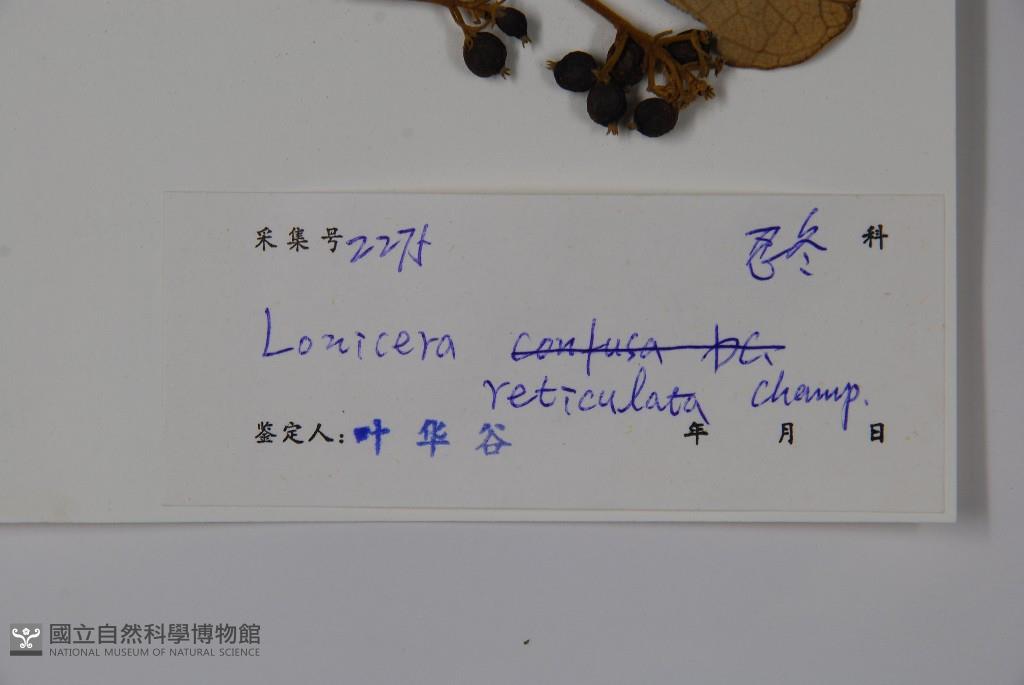 采集号 227 忍冬 科
Lonicera confusa DC.
reticulata champ.
鉴定人: 叶华谷 年 月 日
國立自然科學博物館
NATIONAL MUSEUM OF NATURAL SCIENCE